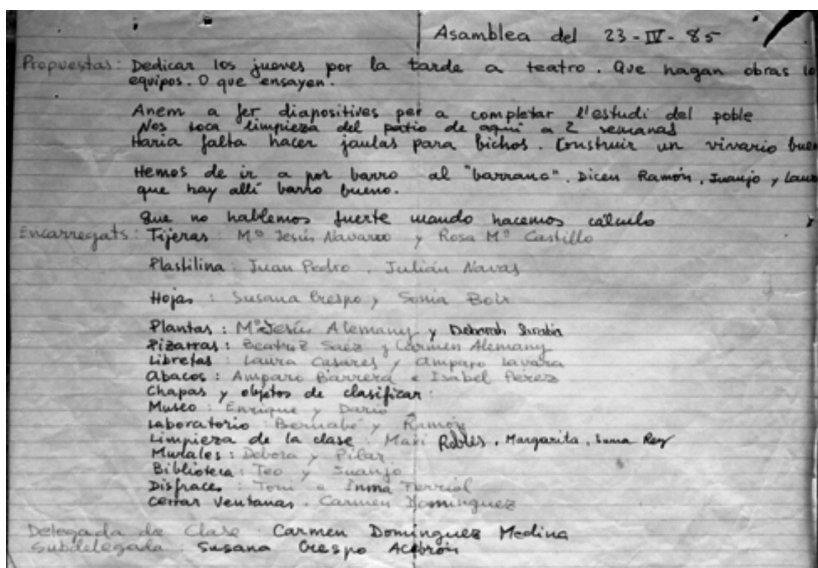 Asamblea del 23-IV-85
Propuestas: Dedicar los jueves por la tarde a teatro. Que hagan obras
equipos. O que ensayen.
Anem a fer diapositives per a completar l'estudi del poble
Nos toca limpieza del patio de aquí a 2 semanas
Haría falta hacer jaulas para bichos. Construir un vivario
Hemos de ir a por barro al "barranc". Dicen Ramón, Juanjo y
que hay allí barro bueno.
Que no hablemos fuerte cuando hacemos cálculo
Encarregats: Tijeras: Mª Jesús Navarro y Rosa Mª Castillo
Plastilina: Juan Pedro, Julián Navas
Hojas: Susana Crespo y Sonia
Plantas: Mª Jesús Alemany y Deborah
Pizarras: Beatriz Saéz y Carmen Alemany
Libretas: Laura Casares y Amparo
Abacos: Amparo Barrera e Isabel Pérez
Chapas y objetos de clasificar:
Museo: Enrique y Darío
Laboratorio: Bernabé y Ramón
Limpieza de la clase: Mari Robles, Margarita, Rey
Murales: Debora y Pilar
Biblioteca: Teo y Juanjo
Disfraces: Toni e Inma
Cerrar ventanas. Carmen Domínguez
Delegada de Clase: Carmen Domínguez Medina
Subdelegada: Susana Crespo Acebrón